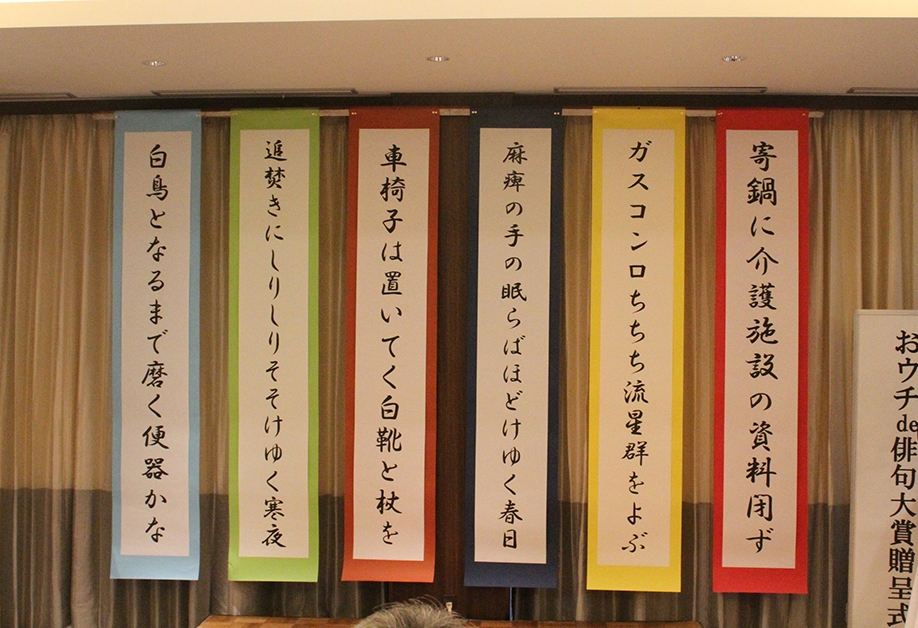 おウチde俳句大賞贈呈式
寄鍋に介護施設の資料閉ず
ガスコンロちちち流星群をよぶ
麻痺の手の眠らばほどけゆく春日
車椅子は置いてく白靴と杖を
追焚きにしりしりそそけゆく寒夜
白鳥となるまで磨く便器かな